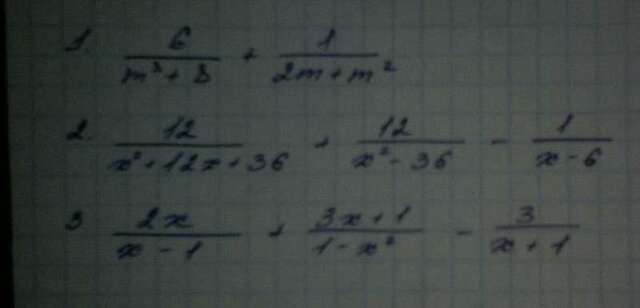 1. 6/(m³+8) + 1/(2m+m²)
2. 12/(x²+12x+36) + 12/(x²-36) - 1/(x-6)
3 2x/(x-1) + (3x+1)/(1-x²) - 3/(x+1)